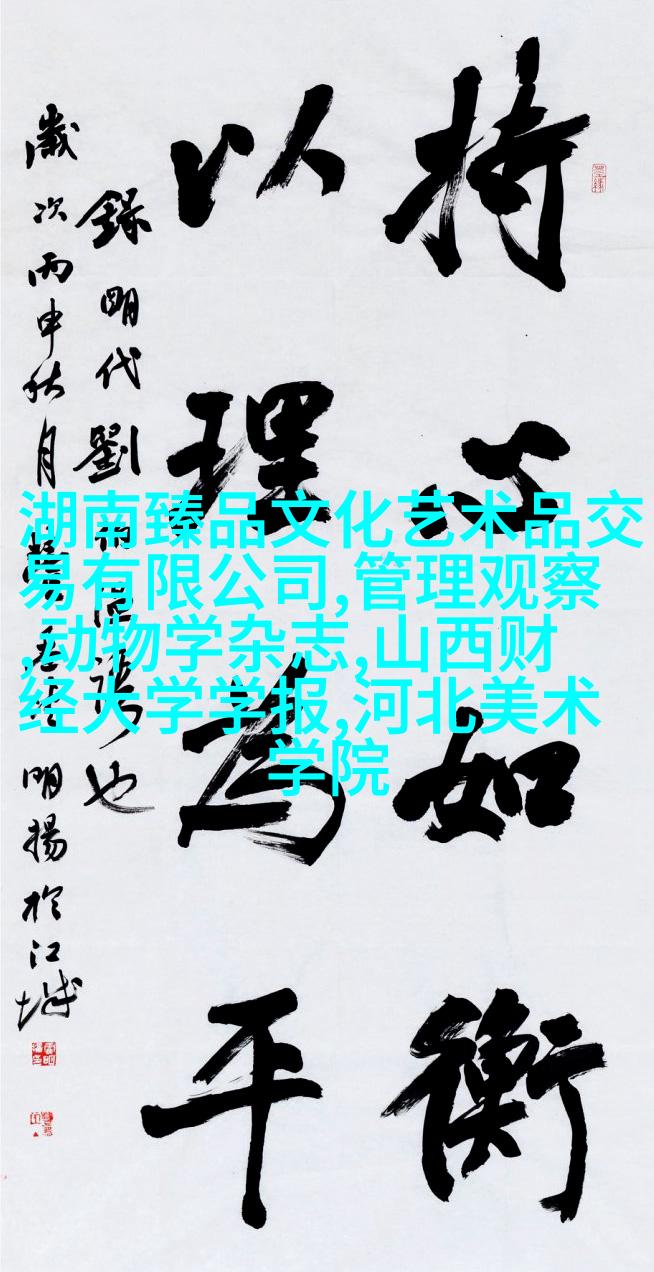 持心如衡
以理为平
錄明代劉
也
歲次丙申秋月
明揚於江城
湖南臻品文化艺术品交
易有限公司,管理观察
,动物学杂志,山西财
经大学学报,河北美术
学院